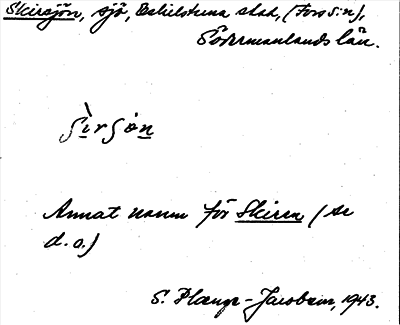 Skirsjön, sjö, Eskilstuna stad, (Fors s:n),
Södermanlands län.
ʃìrʃón
Annat namn för Skiren (se
d. o.)
S. Plænge-Jacobson, 1943.